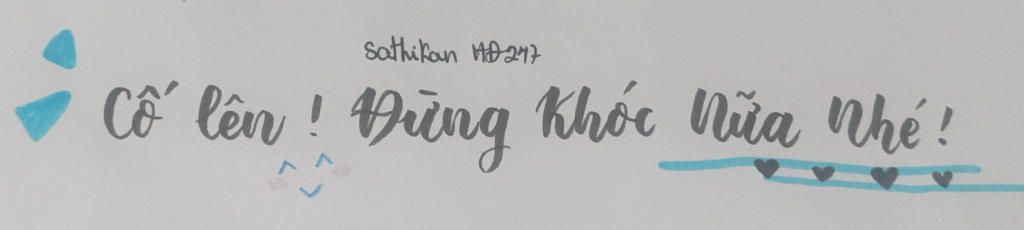 Sathikan HĐ247
Cố lên ! Đừng Khóc Nữa Nhé !